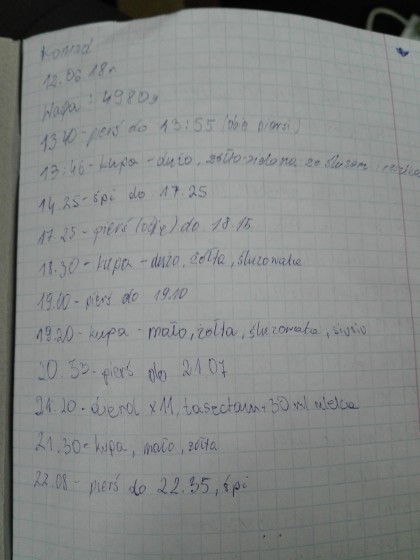 Konrad
12.06.18r.
Waga: 4980g
1340-pierś do 13:55 (obie piersi)
13:46-kupa-dużo, żółto-zielona ze śluzem i
14.25-śpi do 17.25
17.25-pierś (obie) do 18.15
18.30-kupa-dużo, żółta, śluzowata
19.00-pierś do 19.10
19.20-kupa-mało, żółta, śluzowata, siusiu
20.55-pierś do 21.07
21.20- x 11, 30 ml mleka
21.30-kupa, mało, żółta
22.08-pierś do 22.35, śpi